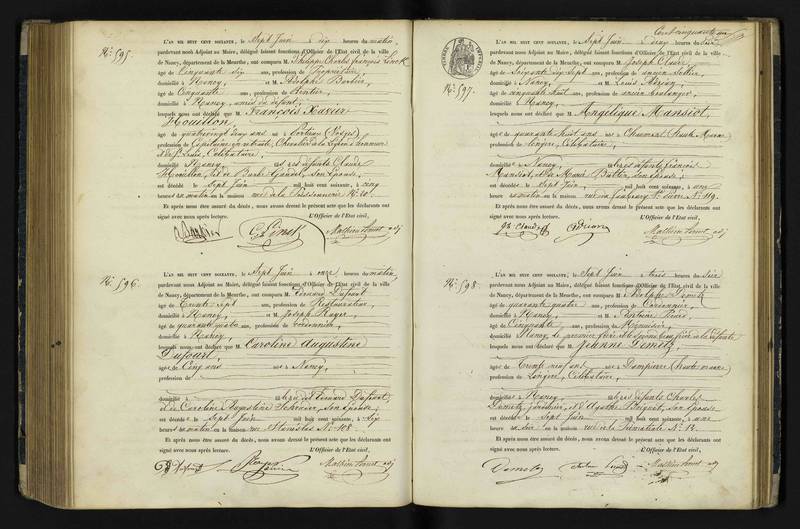 N.º 595.
L'AN MIL HUIT CENT SOIXANTE, le Sept Juin à dix heures du matin,
pardevant nous Adjoint au Maire, délégué faisant fonctions d'Officier de l'Etat civil de la ville
de Nancy, département de la Meurthe, ont comparu M. Philippe Charles François
âgé de Cinquante six ans, profession de Propriétaire,
domicilié à Nancy, et M. Adolphe Barbier,
âgé de Cinquante ans, profession de Rentier,
domicilié à Nancy, amis du défunt,
lesquels nous ont déclaré que M. François Xavier
Houillon,
âgé de quatre vingt deux ans né à Portieux (Vosges)
profession de Capitaine en retraite, Chevalier de la Légion d'honneur
et de St Louis, Célibataire,
domicilié à Nancy fils des défunts Claude
Houillon, et de Barbe son épouse,
est décédé le Sept Juin mil huit cent soixante, à cinq
heures du matin en la maison rue de la Poissonnerie N.º 20.
Et après nous être assuré du décès, nous avons dressé le présent acte que les déclarants ont
signé avec nous après lecture. L'Officier de l'Etat civil,
N.º 596.
L'AN MIL HUIT CENT SOIXANTE, le Sept Juin à onze heures du matin,
pardevant nous Adjoint au Maire, délégué faisant fonctions d'Officier de l'Etat civil de la ville
de Nancy, département de la Meurthe, ont comparu M. Dufoart
âgé de Trente sept ans, profession de Restaurateur,
domicilié à Nancy, et M. Joseph Mayer,
âgé de quarante quatre ans, profession de Cordonnier,
domicilié à Nancy,
lesquels nous ont déclaré que M. Caroline Augustine
Dufoart,
âgée de Cinq ans née à Nancy,
profession de
domicilié à fille de Dufoart,
et de Caroline Augustine son épouse,
est décédée le Sept Juin mil huit cent soixante, à Six
heures du matin en la maison rue Stanislas N.º 108.
Et après nous être assuré du décès, nous avons dressé le présent acte que les déclarants ont
signé avec nous après lecture. L'Officier de l'Etat civil,
Cent cinquante un
N.º 597.
L'AN MIL HUIT CENT SOIXANTE, le Sept Juin à deux heures du soir,
pardevant nous Adjoint au Maire, délégué faisant fonctions d'Officier de l'Etat civil de la ville
de Nancy, département de la Meurthe, ont comparu M. Joseph Claude,
âgé de Soixante dix Sept ans, profession de ancien Sellier,
domicilié à Nancy, et M. Louis Adrian,
âgé de cinquante huit ans, profession de ancien boulanger,
domicilié à Nancy,
lesquels nous ont déclaré que M. Angélique Mansiot,
âgée de quarante huit ans née à Chaumont, Haute Marne
profession de lingère, Célibataire,
domiciliée à Nancy, fille des défunts François
Mansiot, et de Marie son épouse,
est décédée le Sept Juin, mil huit cent soixante, à une
heure du matin en la maison rue du faubourg St Pierre N.º 119.
Et après nous être assuré du décès, nous avons dressé le présent acte que les déclarants ont
signé avec nous après lecture. L'Officier de l'Etat civil,
N.º 598.
L'AN MIL HUIT CENT SOIXANTE, le Sept Juin à trois heures du soir
pardevant nous Adjoint au Maire, délégué faisant fonctions d'Officier de l'Etat civil de la ville
de Nancy, département de la Meurthe, ont comparu M. Adolphe Demetz
âgé de quarante quatre ans, profession de Cordonnier,
domicilié à Nancy et M. Antoine
âgé de Cinquante ans, profession de Menuisier,
domicilié à Nancy, le premier frère et le second beau frère à la défunte,
lesquels nous ont déclaré que M. Jeanne Demetz
âgée de Trente neuf ans née à Dampierre (haute marne)
profession de Lingère, Célibataire,
domiciliée à Nancy fille des défunts Charles
Demetz, et d'Agathe son épouse
est décédée le Sept Juin mil huit cent soixante, à une
heure du soir en la maison rue de la Primatiale N.º 13.
Et après nous être assuré du décès, nous avons dressé le présent acte que les déclarants ont
signé avec nous après lecture. L'Officier de l'Etat civil,